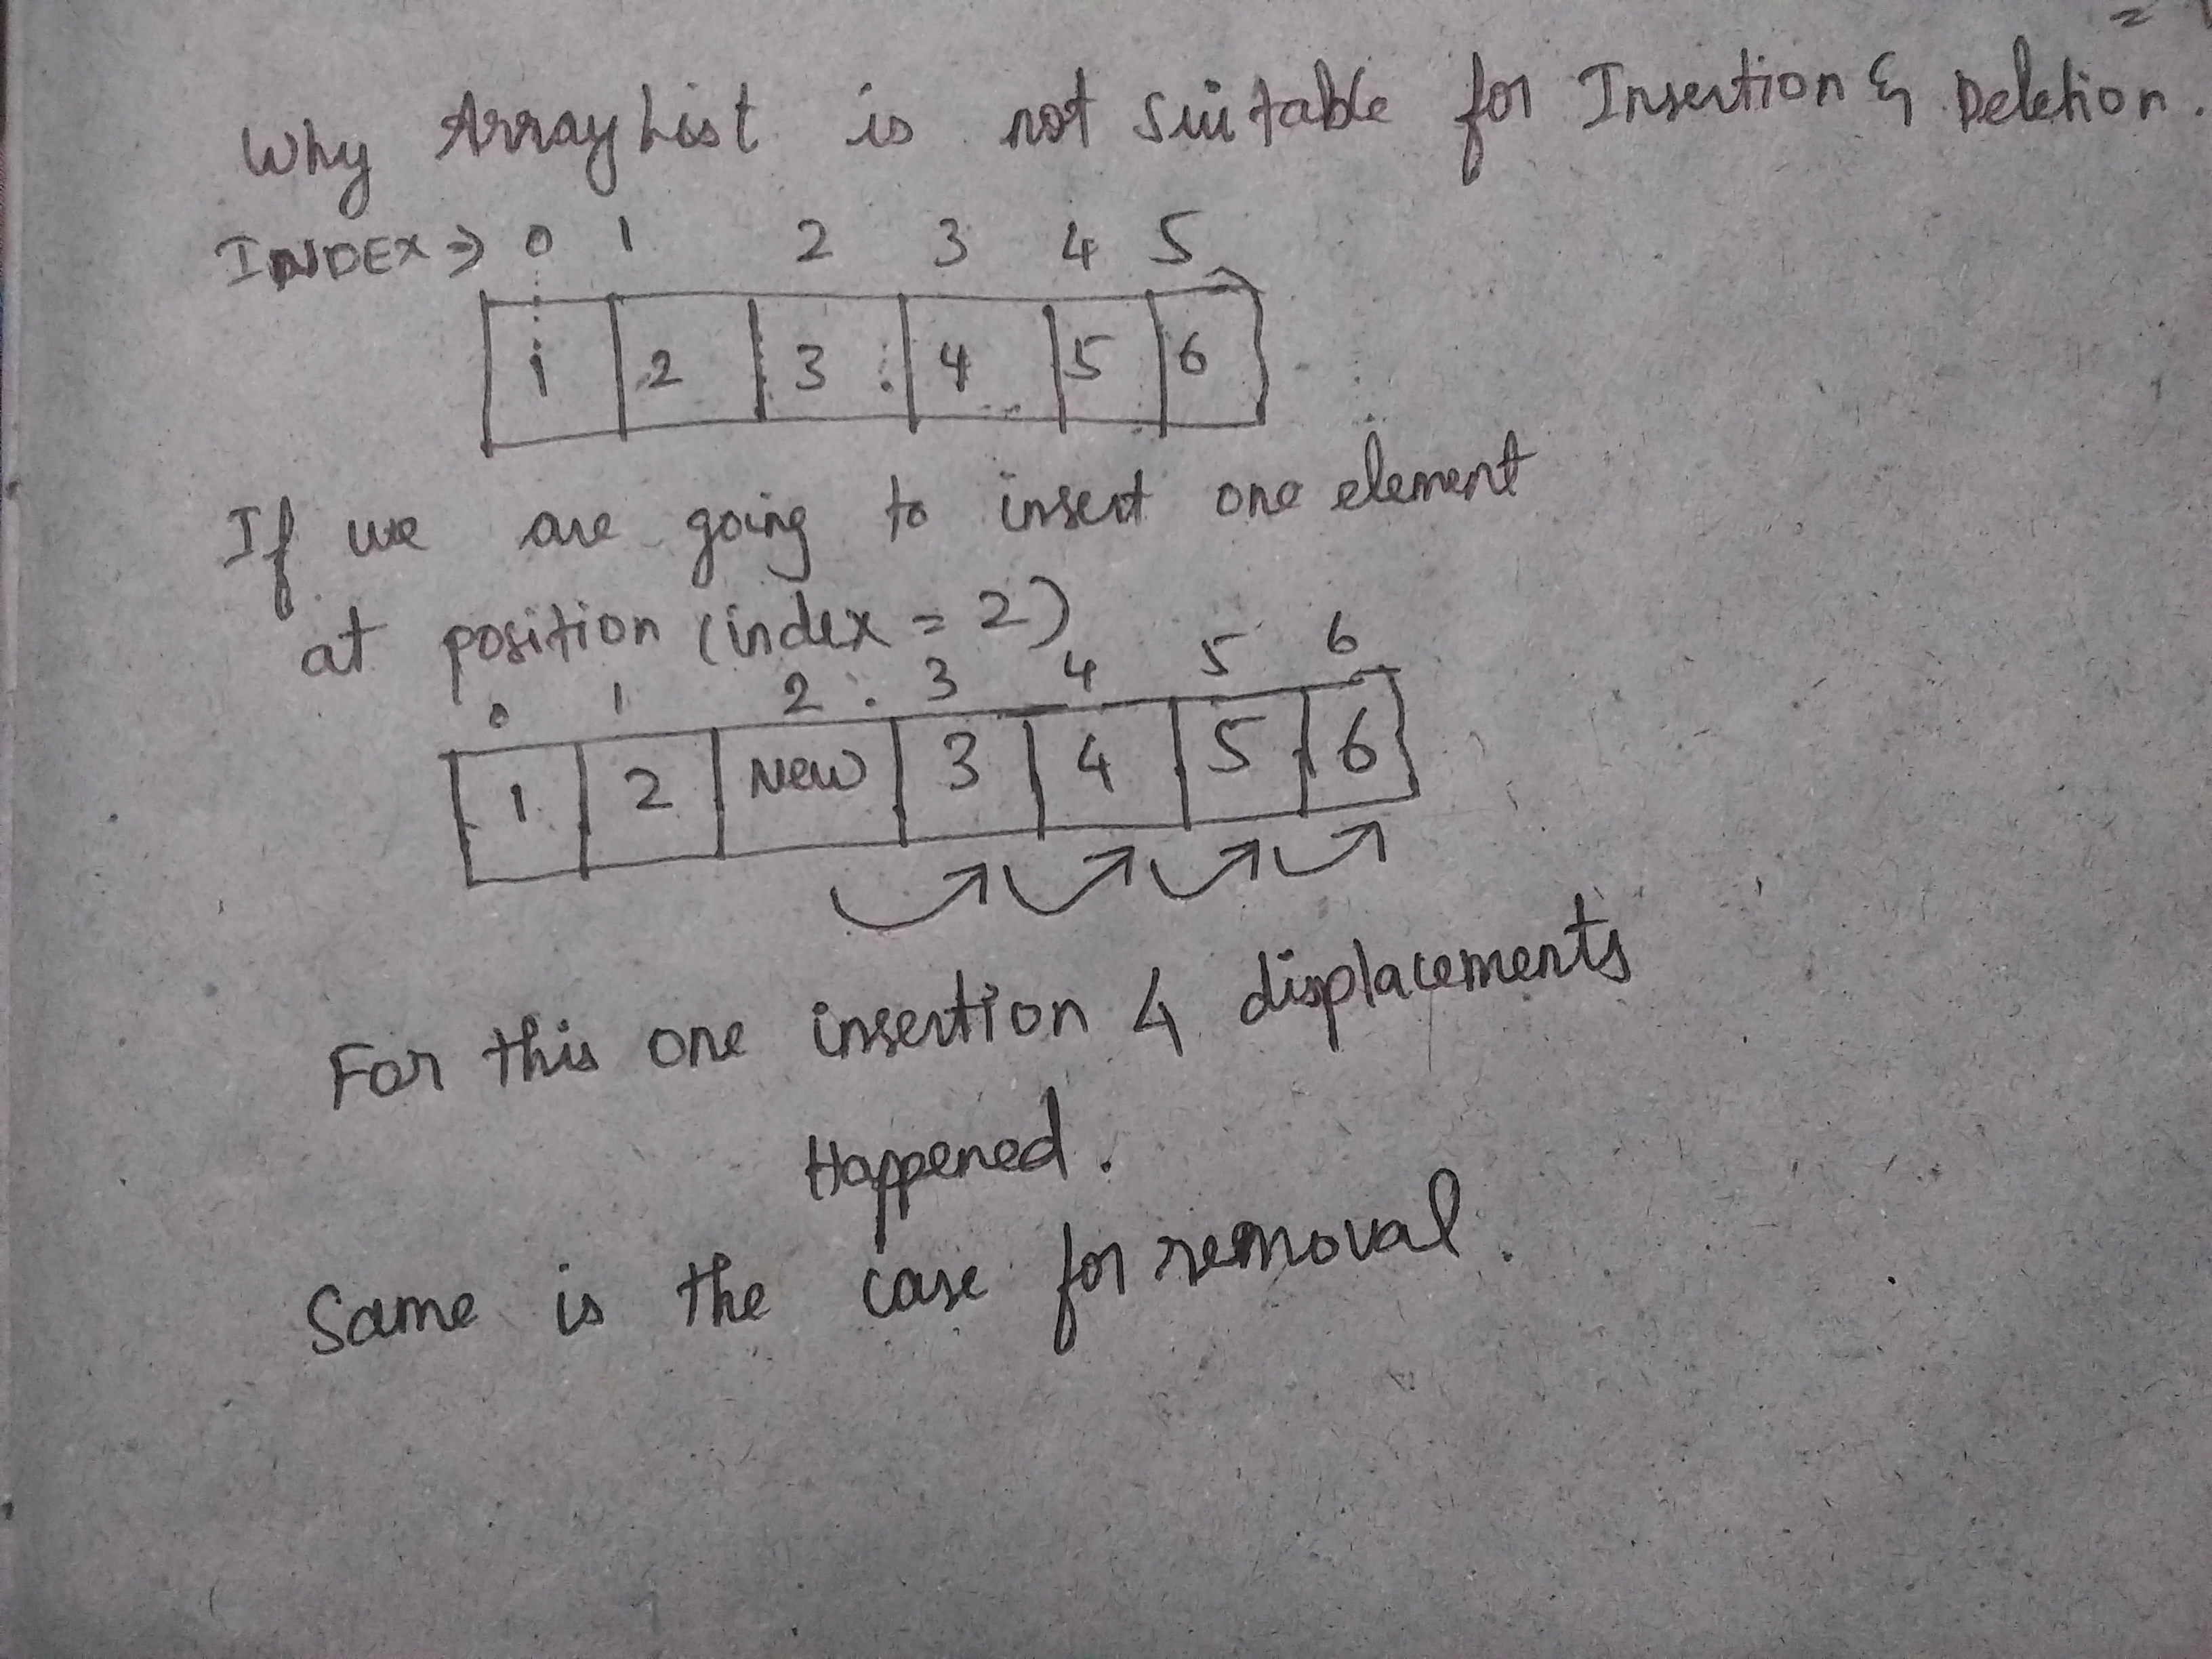 Why ArrayList is not suitable for Insertion & Deletion.
INDEX => 0 1 2 3 4 5
1 2 3 4 5 6
If we are going to insert one element
at position (index = 2)
0 1 2 3 4 5 6
1 2 New 3 4 5 6
For this one insertion 4 displacements
Happened.
Same is the case for removal.